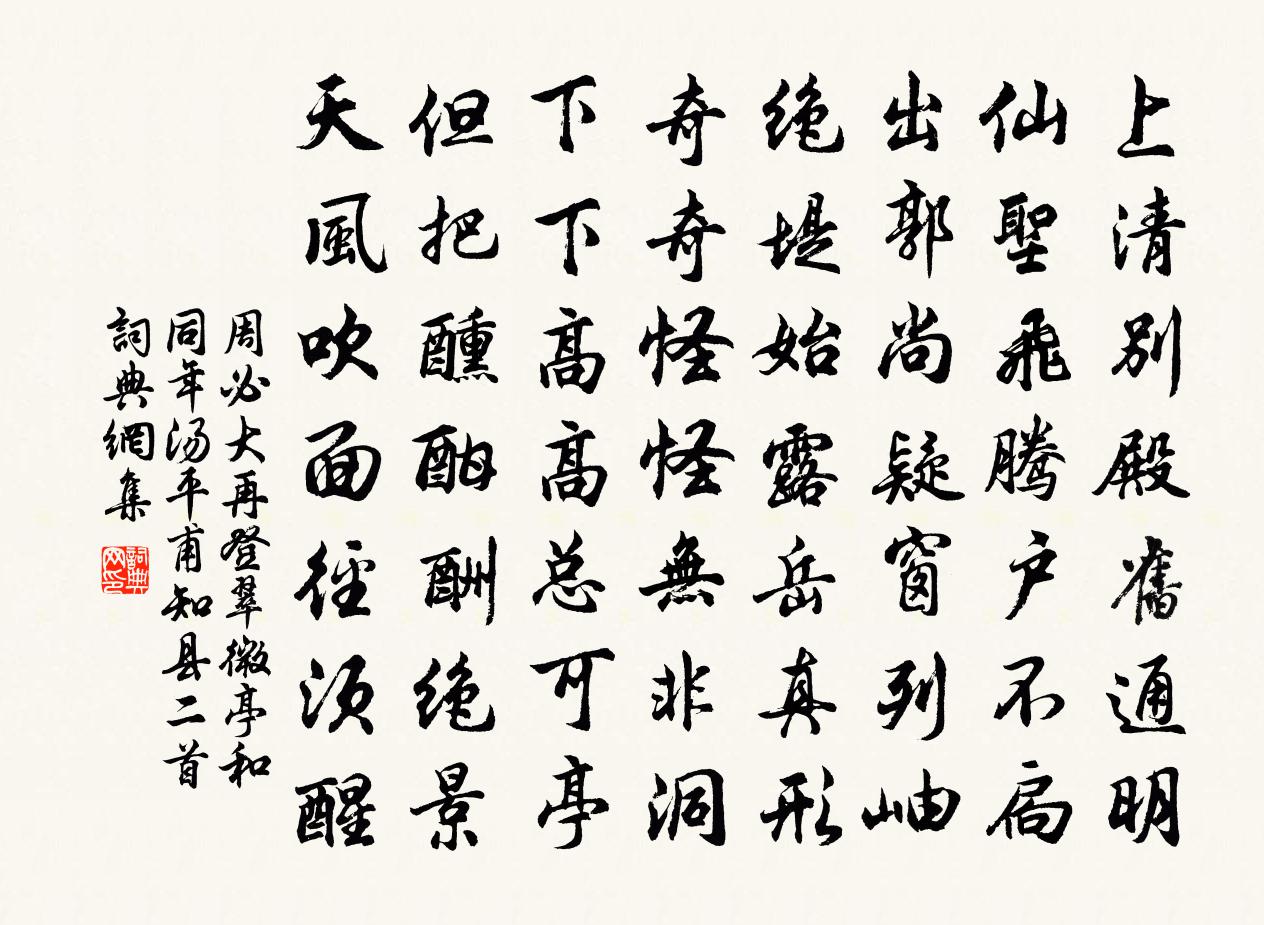 上清別殿舊通明
仙聖飛騰户不扃
出郭尚疑窗列岫
绝堤始露岳真形
奇奇怪怪無非洞
下下高高总可亭
但把醺酣酬绝景
天風吹面徑須醒
周必大再登翠微亭和
同年汤平甫知县二首
詞典網集
詞典网印